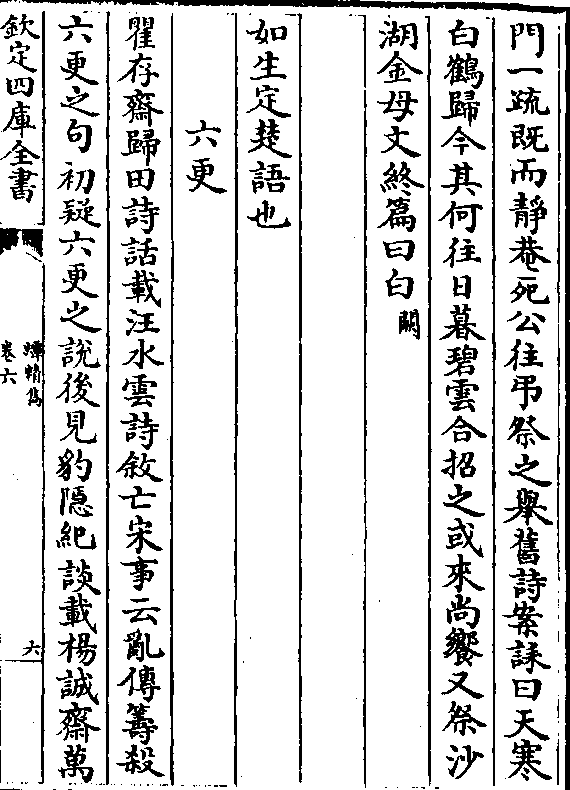 門一疏既而靜菴死公往弔祭之舉舊詩案誄曰天寒
白鶴歸今其何往日暮碧雲合招之或來尚饗又祭沙
湖金母文終篇曰白闕
如生定楚語也
六更
瞿存齋歸田詩話載汪水雲詩敘亡宋事云亂傳籌殺
六更之句初疑六更之說後見豹隱紀談載楊誠齋萬
欽定四庫全書
蟫精雋
卷六
六